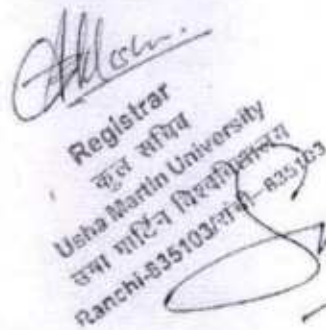 Registrar
कुल सचिव
Usha Martin University
उषा मार्टिन विश्वविद्यालय
Ranchi-835103/रांची-835103